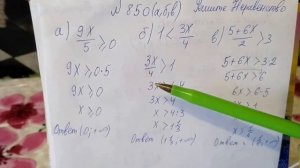 № 850(а,б,в) Решите Неравенство
а) 9x/5 ≥ 0
9x ≥ 0·5
9x ≥ 0
x ≥ 0
Ответ (0; +∞)
б) 1 < 3x/4
3x/4 > 1
3x > 4
x > 1⅓
Ответ (1⅓; +∞)
в) 5+6x/2 > 3
5+6x > 3·2
5+6x > 6
6x > 6-5
Ответ =